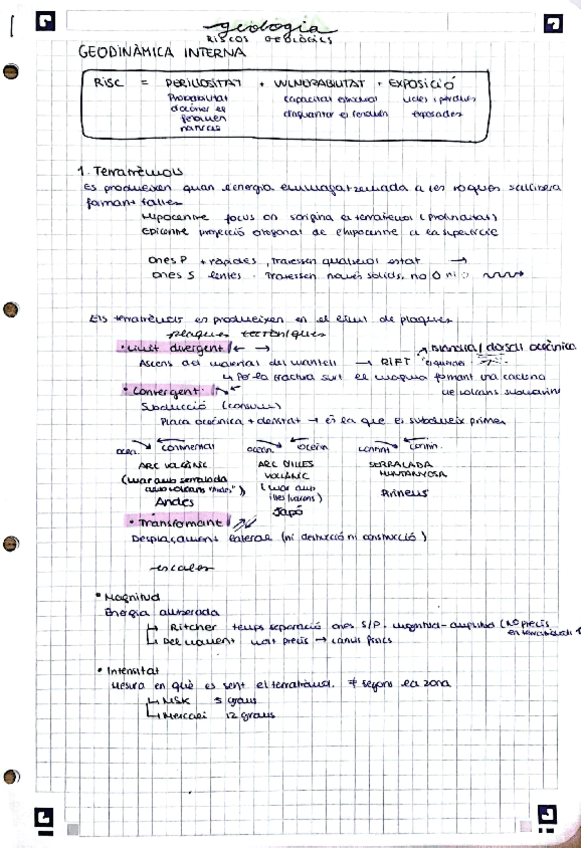 geologia
RISCOS GEOLÒGICS
GEODINÀMICA INTERNA
RISC = PERILLOSITAT + VULNERABILITAT + EXPOSICIÓ
Probabilitat capacitat vides i pèrdues
d'ocórrer el d'aguantar el fenomen exposades
fenomen
1. Terratrèmols
Es produeixen quan l'energia emmagatzemada a les roques s'allibera
formant falles
Hipocentre focus on s'origina el terratrèmol (profunditat)
Epicentre projecció ortogonal de l'hipocentre a la superfície
ones P + ràpides, travessen qualsevol estat →
ones S lentes. Travessen només sòlids, no
Els terratrèmols es produeixen en el límit de plaques
plaques tectòniques
• Límit divergent ← →
Islàndia / dorsal oceànica
Ascens del material del mantell → RIFT
↳ Per la fractura surt el magma formant una cadena
de volcans submarins
• Convergent
Subducció (consum)
Placa oceànica + densitat → és la que es subdueix primer
oceàn. continental oceàn. oceàn contin. contin.
ARC VOLCÀNIC ARC D'ILLES SERRALADA
VOLCÀNIC MUNTANYOSA
(mar amb serralada (mar amb Pirineus
amb volcans "Andes")
Andes Japó
• Transformant
Desplaçament lateral (ni destrucció ni construcció)
escales
• Magnitud
Energia alliberada
↳ Ritcher temps separació ones S/P. magnitud-amplitud (NO precís
↳ Del moment més precís → canvis físics
• Intensitat
Mesura en què es sent el terratrèmol. ≠ segons la zona
↳ MSK 5 graus
↳ Mercali 12 graus